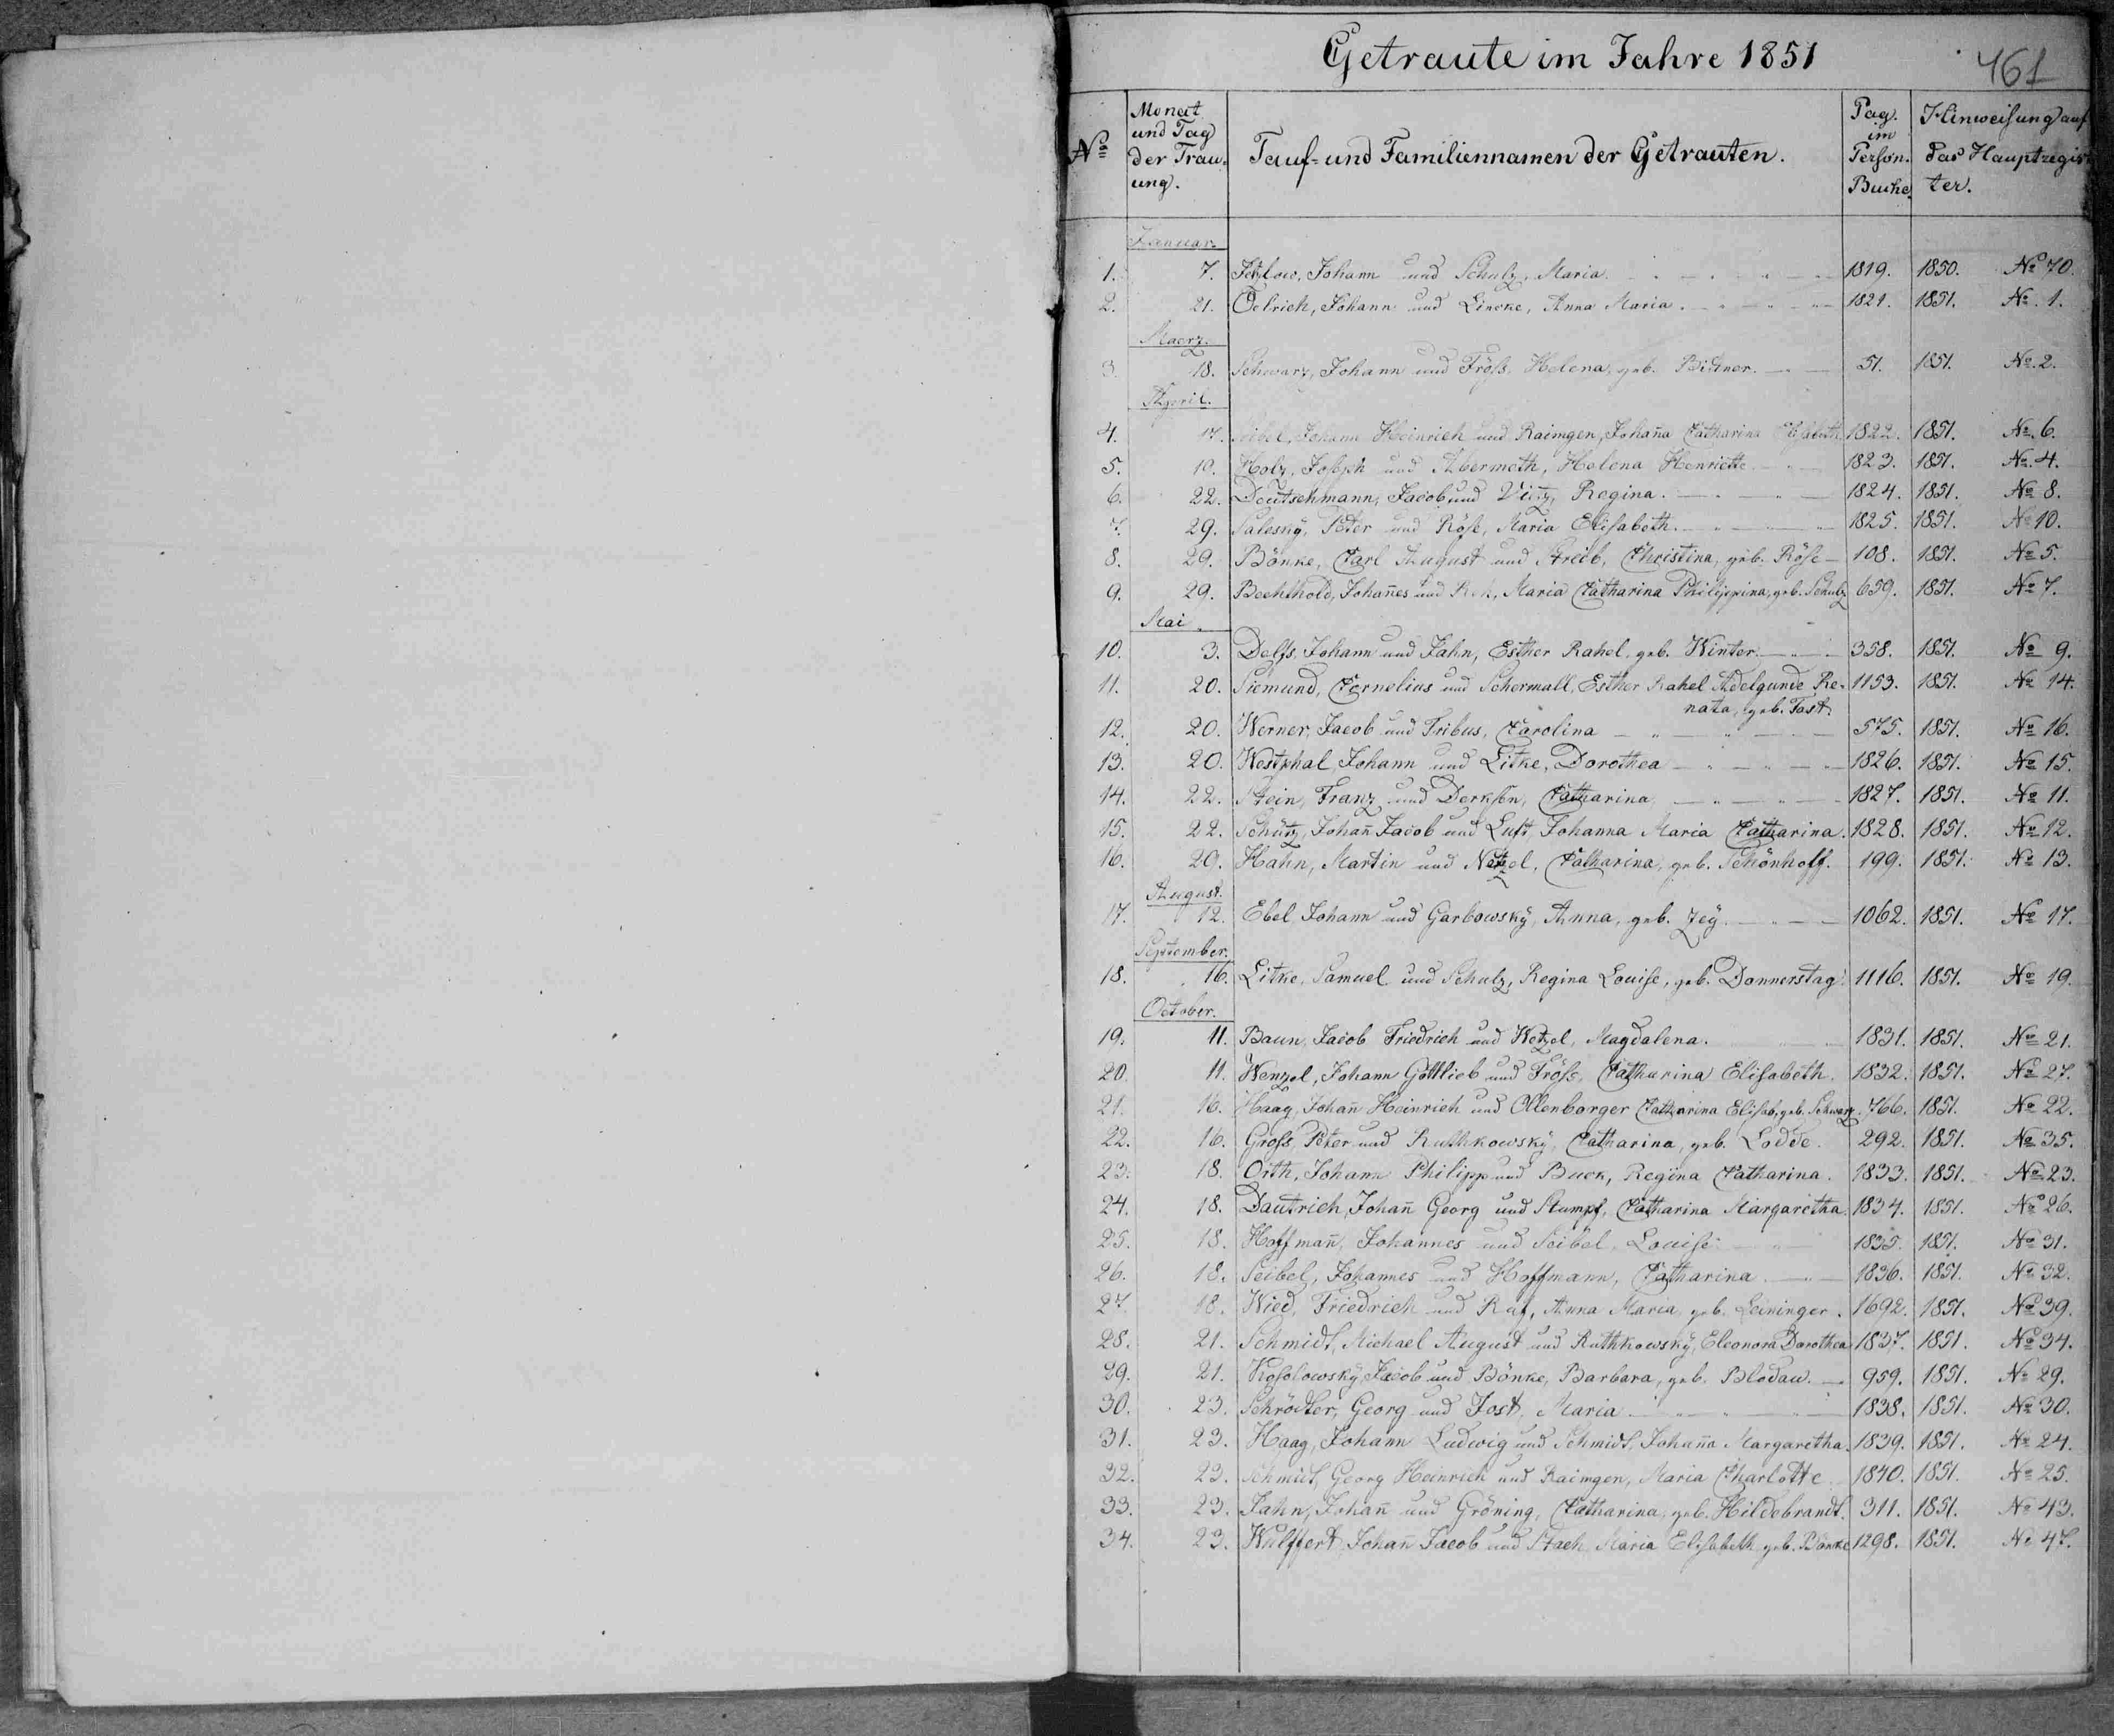 Getraute im Jahre 1851
461
No Monat und Tag der Trauung. Tauf- und Familiennamen der Getrauten. Pag. im Person. Buche. Hinweisung auf das Hauptregister.
Januar.
1. 7. Jetzlow, Johann und Schulz, Maria. 1819. 1850. No 70.
2. 21. Oelrich, Johann und Lincke, Anna Maria. 1821. 1851. No. 1.
Maerz.
3. 18. Schwarz, Johann und Fröss, Helena, geb. Bittner. 51. 1851. No. 2.
April.
4. 17. Seibel, Johann Heinrich und Raimgen, Johaña Catharina Elisabeth 1822. 1851. No. 6.
5. 10. Holz, Joseph und Abermeth, Helena Henriette. 1823. 1851. No. 4.
6. 22. Deutschmann, Jacob und Regina. 1824. 1851. No 8.
7. 29. Salesky, Peter und Röse, Maria Elisabeth. 1825. 1851. No 10.
8. 29. Bönke, Carl August und Streib, Christina, geb. Röse 108. 1851. No 5.
9. 29. Bechthold, Johañes und Maria Catharina Philippina, geb. Schulz 659. 1851. No 7.
Mai.
10. 3. Delfs, Johann und Jahn, Esther Rahel, geb. Winter 358. 1851. No 9.
11. 20. Siemund, Cornelius und Schermall, Esther Rahel Adelgunde Re- 1153. 1851. No 14.
nata, geb. Fast.
12. 20. Werner, Jacob und Tribus, Carolina 575. 1851. No 16.
13. 20. Westphal, Johann und Litke, Dorothea 1826. 1851. No 15.
14. 22. Stein, Franz und Derksen, Catharina 1827. 1851. No 11.
15. 22. Schütz, Johañ Jacob und Luft, Johanna Maria Catharina. 1828. 1851. No 12.
16. 20. Hahn, Martin und Netzel, Catharina, geb. Schönhoff. 199. 1851. No 13.
August.
17. 12. Ebel, Johann und Garbowsky, Anna, geb. Zey. 1062. 1851. No 17.
September.
18. 16. Litke, Samuel und Schulz, Regina Louise, geb. Donnerstag. 1116. 1851. No 19.
October.
19. 11. Baun, Jacob Friedrich und Wetzel, Magdalena. 1831. 1851. No 21.
20. 11. Wenzel, Johann Gottlieb und Fröss, Catharina Elisabeth. 1832. 1851. No 27.
21. 16. Haag, Johañ Heinrich und Ollenborger Catharina Elisab, geb. Schwarz. 766. 1851. No 22.
22. 16. Gross, Peter und Ruthkowsky, Catharina, geb. Lodde. 292. 1851. No 35.
23. 18. Orth, Johann Philipp und Buck, Regina Catharina. 1833. 1851. No 23.
24. 18. Dautrich, Johañ Georg und Stumpf, Catharina Margaretha. 1834. 1851. No 26.
25. 18. Hoffmañ, Johannes und Seibel, Louise 1835. 1851. No 31.
26. 18. Seibel, Johannes und Hoffmann, Catharina. 1836. 1851. No 32.
27 18. Wied, Friedrich und Anna Maria, geb. Leininger. 1692. 1851. No 39.
28. 21. Schmidt, Michael August und Ruthkowsky, Eleonora Dorothea 1837. 1851. No 34.
29. 21. Kosolowsky, Jacob und Bönke, Barbara, geb. Blodau. 959. 1851. No 29.
30. 23. Schrödter, Georg und Jost, Maria 1838. 1851. No 30.
31. 23. Haag, Johann Ludwig und Schmidt, Johaña Margaretha. 1839. 1851. No 24.
32. 23. Schmidt, Georg Heinrich und Raimgen, Maria Charlotte 1840. 1851. No 25.
33. 23. Jahn, Johañ und Gröning, Catharina, geb. Hildebrandt. 311. 1851. No 43.
34. 23. Wulffert, Johañ Jacob und Stach Maria Elisabeth geb. Bönke 1298. 1851. No 47.